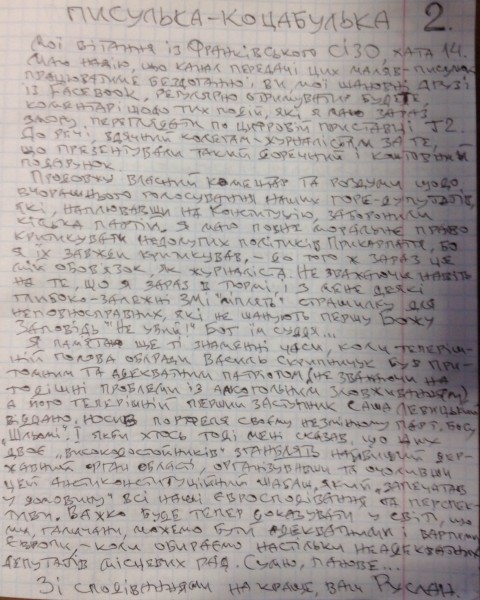 ПИСУЛЬКА-КОЦАБУЛЬКА 2.
Мої вітання із Франківського СІЗО, хата 14.
Маю надію, що канал передачі цих маляв-писульок
працюватиме бездоганно, і ви, мої шановні друзі
із Facebook, регулярно отримувати будете
коментарі щодо тих подій, які я маю зараз
змогу переглядати по цифровій приставці Т2.
До речі, вдячний колегам-журналістам за те,
що презентували такий доречний і коштовний
подарунок.
Продовжу власний коментар та роздуми щодо
вчорашнього голосування наших горе-депутатів,
які, наплювавши на Конституцію, заборонили
кілька партій. Я маю повне моральне право
критикувати недолугих політиків Прикарпаття, бо
я їх завжди критикував, - до того ж зараз це
мій обов'язок, як журналіста. Не зважаючи навіть
на те, що я зараз в тюрмі, і з мене деякі
глибоко-залежні ЗМІ "ліплять" страшилку для
неповносправних, які не шанують першу Божу
Заповідь "Не убий"! Бог їм суддя...
Я пам'ятаю ще ті знаменні часи, коли теперіш-
ній голова облради Василь Скрипничук був при-
томним та адекватним патріотом (не зважаючи на
тодішні проблеми із алкогольним зловживанням)
а його теперішній перший заступник Саша Левицький
віддано носив портфеля своєму незмінному парт. босу
"Шльомі". І якби хтось тоді мені сказав, що цих
двоє "високодостойників" зганблять найвищий дер-
жавний орган області, організувавши та очоливши
цей антиконституційний шабаш, який "запечатав
у домовину" всі наші євросподівання та перспек-
тиви. Важко буде тепер доказувати у світі, що
ми, галичани, можемо бути адекватними і вартими
Європи, - коли обираємо настільки неадекватних
депутатів місцевих рад. Сумно, панове...
Зі сподіваннями на краще, ваш Руслан.